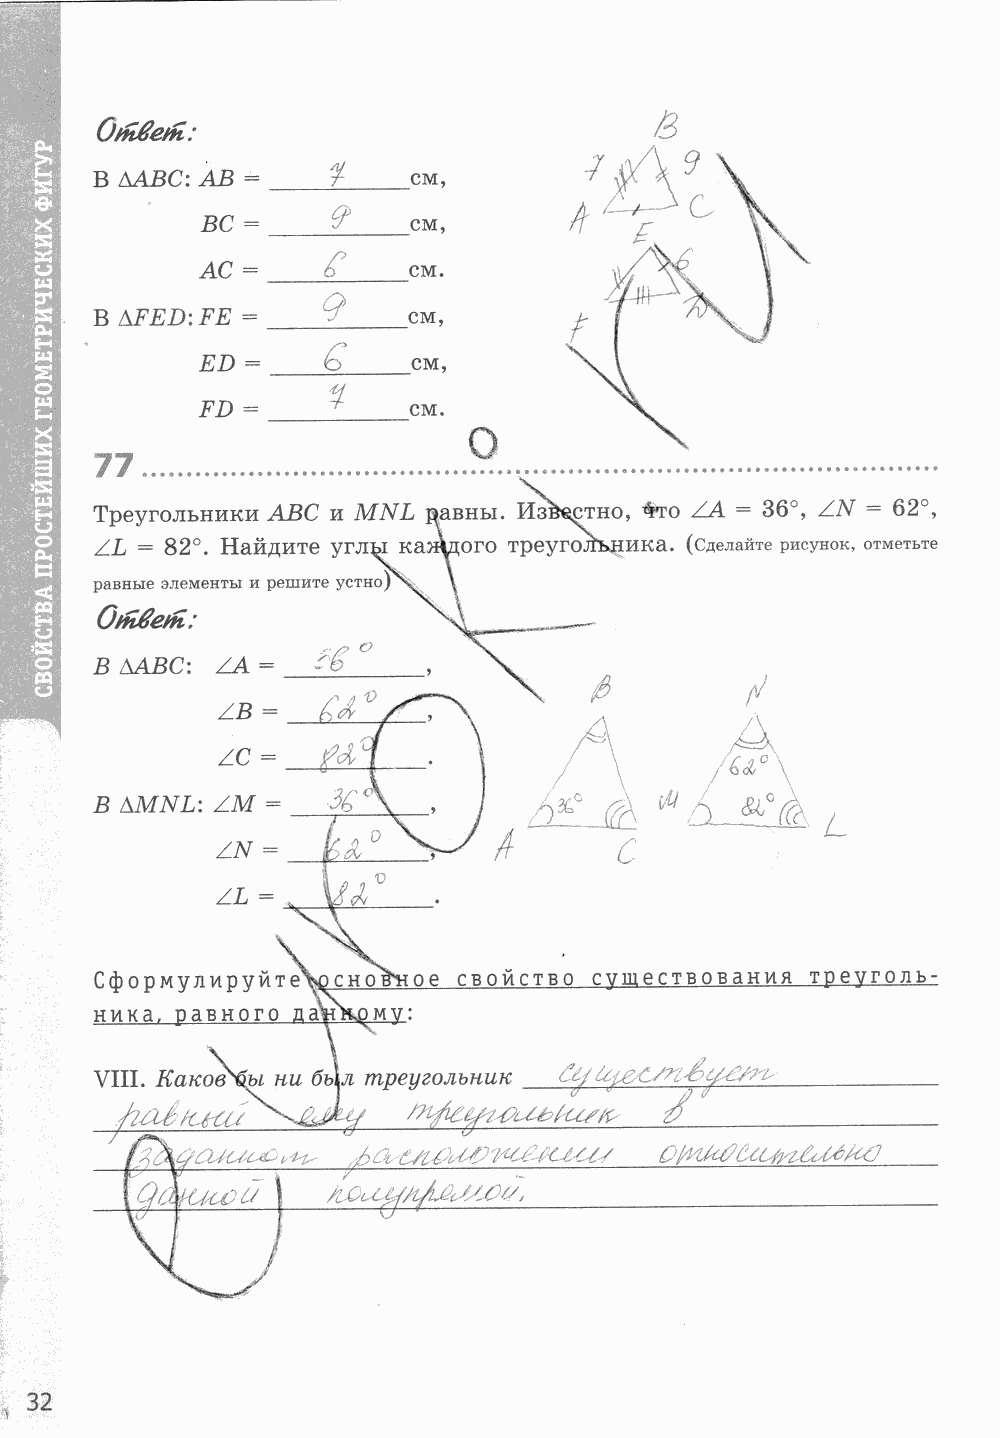 СВОЙСТВА ПРОСТЕЙШИХ ГЕОМЕТРИЧЕСКИХ ФИГУР
Ответ:
В ΔABC: AB = 7 см,
BC = 9 см,
AC = 6 см.
В ΔFED: FE = 9 см,
ED = 6 см,
FD = 7 см.
B
7 9
A C
E
6
F D
77
Треугольники ABC и MNL равны. Известно, что ∠A = 36°, ∠N = 62°,
∠L = 82°. Найдите углы каждого треугольника. (Сделайте рисунок, отметьте
равные элементы и решите устно)
Ответ:
В ΔABC: ∠A = 36°,
∠B = 62°,
∠C = 82°.
В ΔMNL: ∠M = 36°,
∠N = 62°,
∠L = 82°.
B
36°
A C
N
62°
M 82° L
Сформулируйте основное свойство существования треуголь-
ника, равного данному:
VIII. Каков бы ни был треугольник существует
равный ему треугольник в
заданном расположении относительно
данной полупрямой.
32